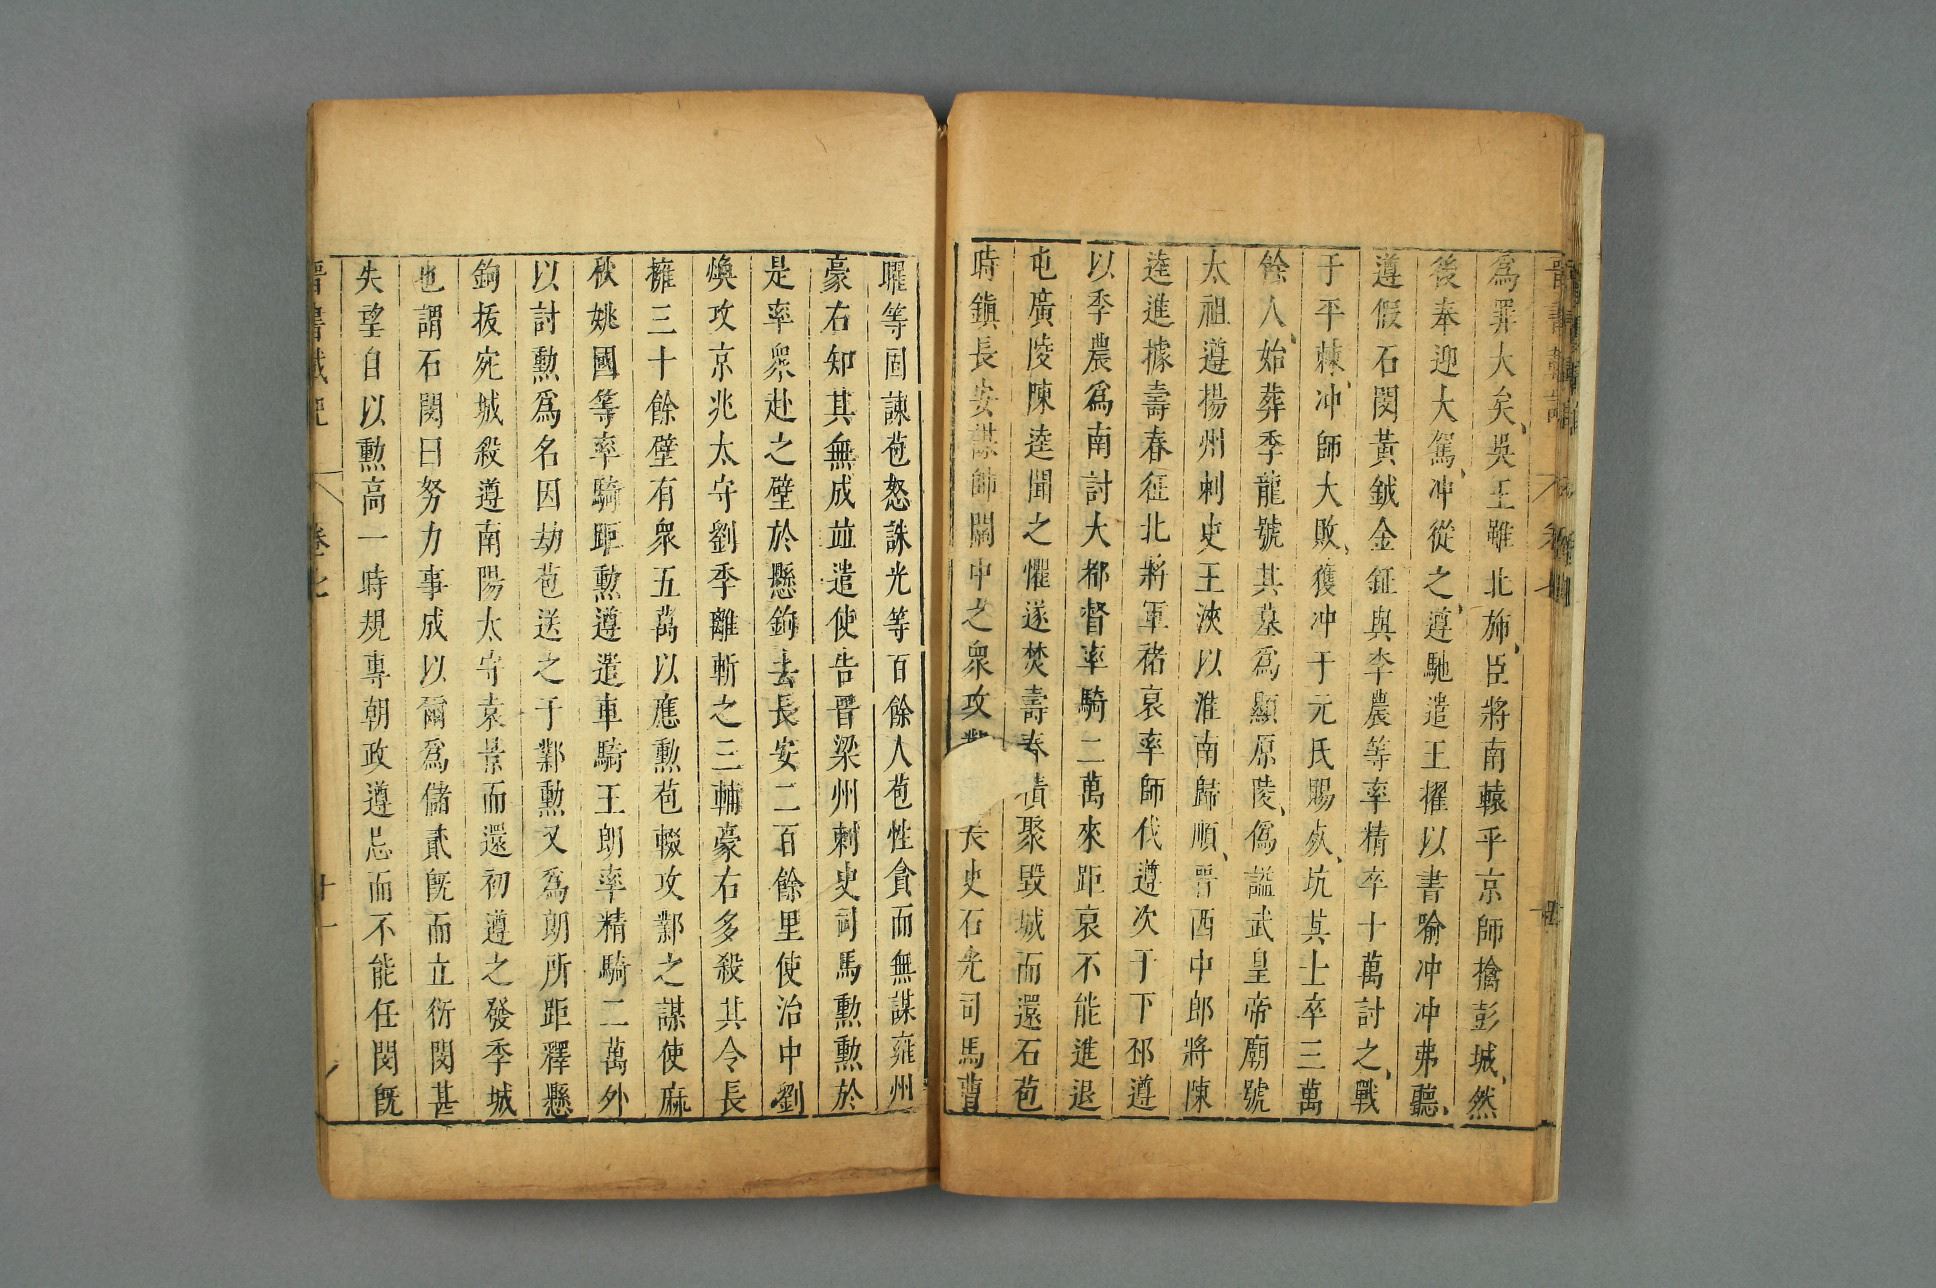 為罪大矣吳王雖北斾臣將南轅平京師擒彭城然
後奉迎大駕冲從之遵馳遣王擢以書喻冲冲弗聽
遵假石閔黃鉞金鉦與李農等率精卒十萬討之戰
于平棘冲師大敗獲冲于元氏賜死坑其士卒三萬
餘人始葬季龍號其墓爲顯原陵僞諡武皇帝廟號
太祖遵揚州刺史王浹以淮南歸順晉西中郎將陳
逵進據壽春征北將軍禇裒率師伐遵次于下邳遵
以李農爲南討大都督率騎二萬來距裒不能進退
屯廣陵陳逵聞之懼遂焚壽春積聚毀城而還石苞
時鎮長安謀帥關中之眾攻鄴長史石光司馬曹
曜等固諫苞怒誅光等百餘人苞性貪而無謀雍州
豪右知其無成竝遣使告晉梁州刺史司馬勲勲於
是率眾赴之壁於懸鉤去長安二百餘里使治中劉
煥攻京兆太守劉季離斬之三輔豪右多殺其令長
擁三十餘壁有眾五萬以應勲苞輟攻鄴之謀使麻
秋姚國等率騎距勲遵遣車騎王朗率精騎二萬外
以討勲爲名因劫苞送之于鄴勲又爲朗所距釋懸
鉤拔宛城殺遵南陽太守袁景而還初遵之發李城
也謂石閔曰努力事成以爾爲儲貳旣而立衍閔甚
失望自以勲高一時規專朝政遵忌而不能任閔旣
晉書載記 卷七 廿一